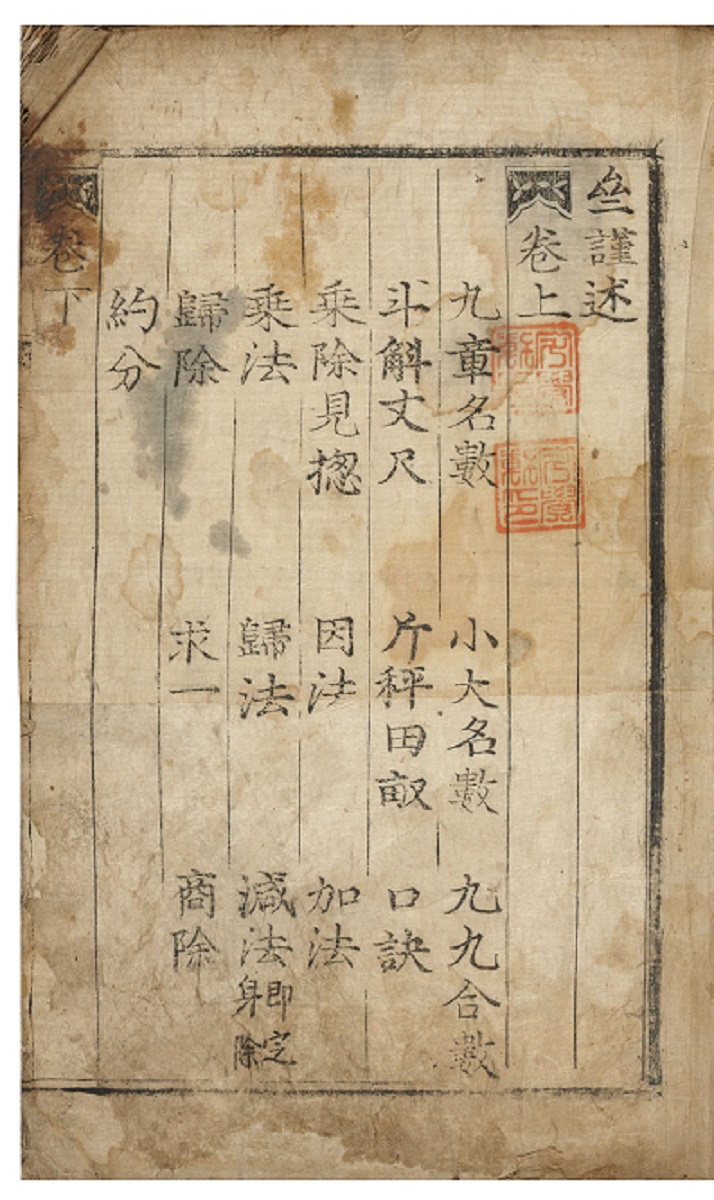 亝謹述
卷上
九章名數 小大名數 九九合數
斗斛丈尺 斤秤田畝 口訣
乗除見揔 因法 加法
乗法 歸法 減法 即定身除
歸除 求一 商除
約分
卷下